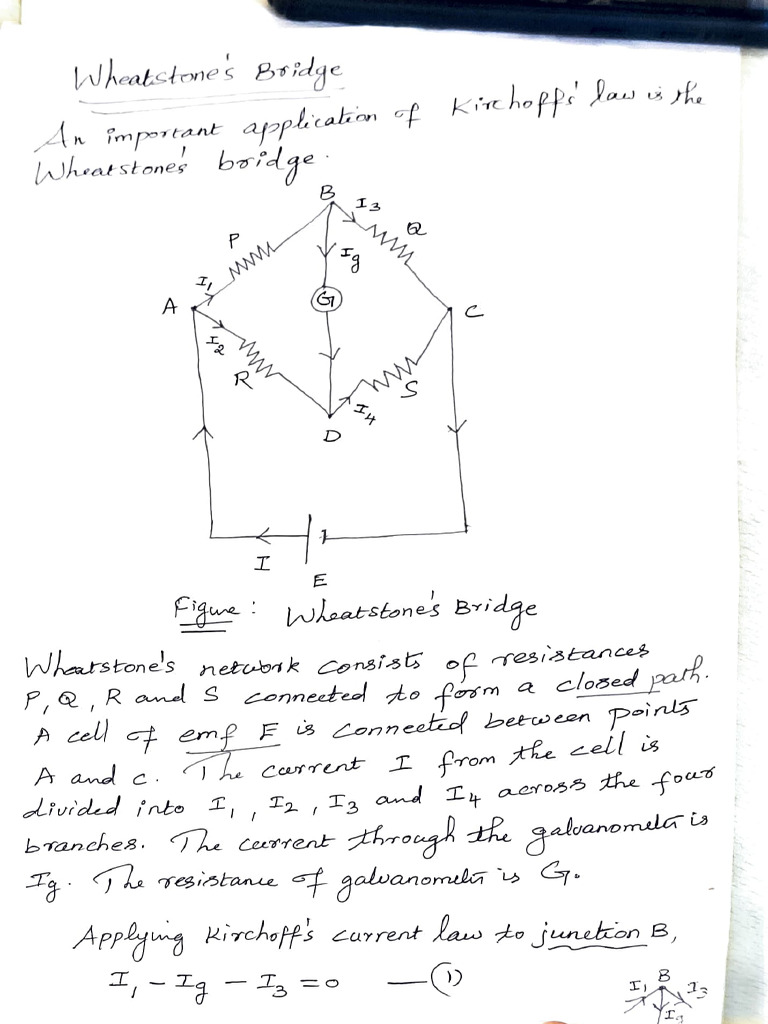 Wheatstone's Bridge
An important application of Kirchoff's law is the
Wheatstone's bridge.
B
I3
P
Q
Ig
I1
G
A
C
I2
R
S
I4
D
I
E
Figure : Wheatstone's Bridge
Wheatstone's network consists of resistances
P, Q, R and S connected to form a closed path.
A cell of emf E is connected between points
A and C. The current I from the cell is
divided into I1, I2, I3 and I4 across the four
branches. The current through the galvanometer is
Ig. The resistance of galvanometer is G.
Applying Kirchoff's current law to junction B,
I1 - Ig - I3 = 0 —(1)
B
I1
I3
Ig